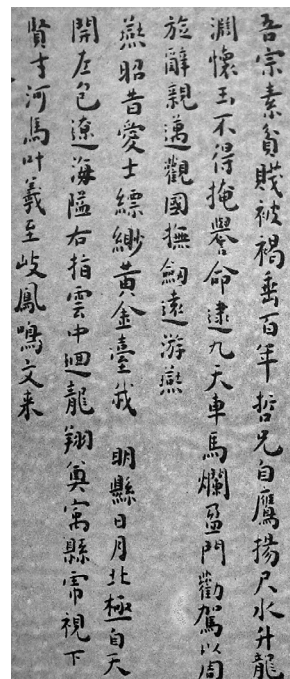 吾宗素貧賤被褐垂百年哲兄自鷹揚尺水升龍
淵懷玉不得掩譽命逮九天車馬爛盈門勸駕以周
旋辭親邁觀國撫劍遠游燕
燕昭昔愛士縹緲黃金臺我 明縣日月北極自天
開左包遼海隘右指雲中迴龍翔奠寓縣帝視下
賢才河馬叶羲至岐鳳鳴文来